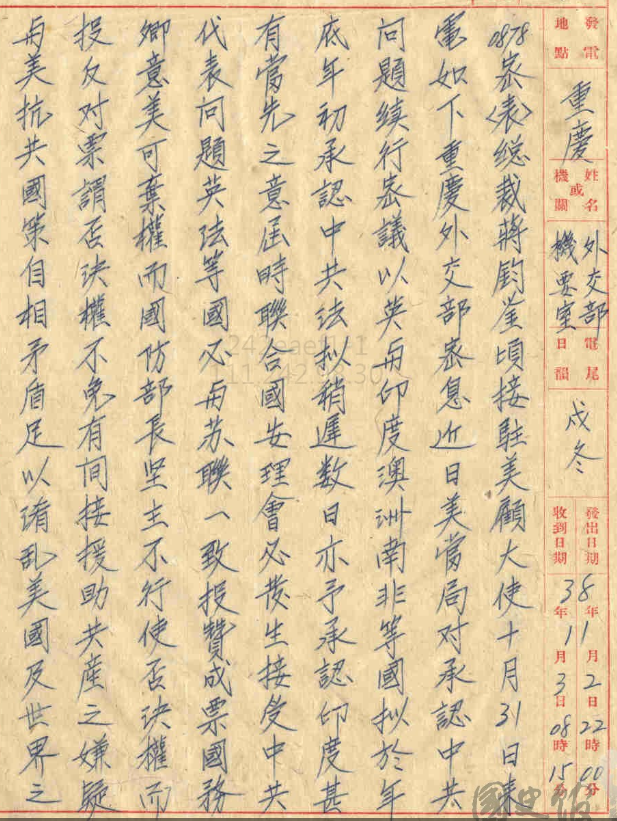 發電地點
重慶
姓名或機關
外交部機要室
電尾日韻
戌冬
發出日期 38年11月2日22時00分
收到日期 3日08時15分
0878密(表)總裁蔣鈞鑒頃接駐美顧大使十月31日來
電如下重慶外交部密息近日美當局对承認中共
问題續行密議以英與印度澳洲南非等國拟於年
底年初承認中共法拟稍遲数日亦予承認印度甚
有當先之意屆時聯合國安理會必發生接受中共
代表问題英法等國必與苏聯一致投贊成票國務
卿意美可棄權而國防部長坚主不行使否決權而
投反对票謂否決權不免有间接援助共產之嫌疑
與美抗共國策自相矛盾足以淆乱美國及世界之
國史館